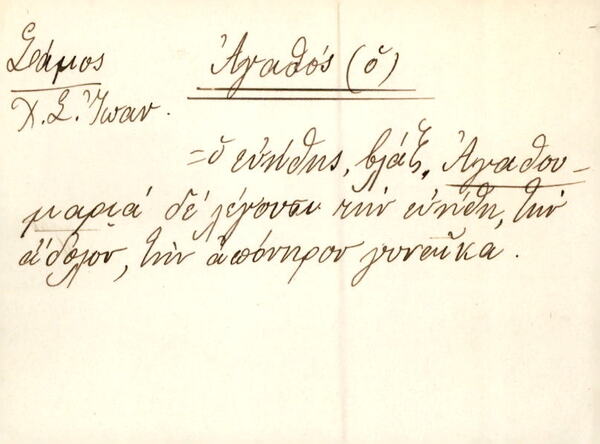 Σάμος
Ἀγαθός (ὁ)
Χ. Σ. Ἰωαν.
= ὁ εὐήθης, βλάξ, Ἀγαθου-
μαριά δέ λέγουσι τὴν εὐήθη, τὴν
ἄδολον, τὴν ἀπόνηρον γυναῖκα.